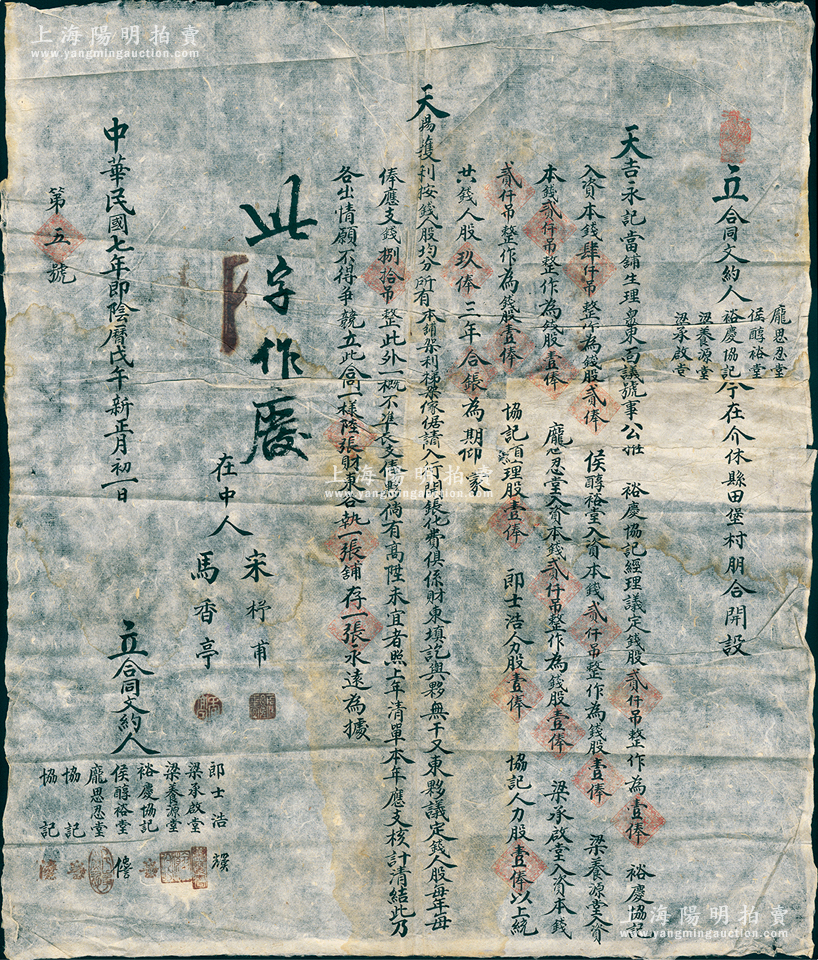 上海陽明拍賣
www.yangmingauction.com
立合同文約人
龐思忍堂
侯醇裕堂
裕慶協記
梁養源堂
梁承啟堂
今在介休縣田堡村朋合開設
天吉永記當鋪生理
裕慶協記經理議定錢股貳仟吊整作為壹俸 裕慶協記
入資本錢肆仟吊整作為錢股貳俸 侯醇裕堂入資本錢貳仟吊整作為錢股壹俸 梁養源堂入資
本錢貳仟吊整作為錢股壹俸 龐思忍堂入資本錢貳仟吊整作為錢股壹俸 梁承啟堂入資本錢
貳仟吊整作為錢股壹俸 協記頂理股壹俸 郎士浩分股壹俸 協記人力股壹俸以上統
共錢人股玖俸三年合賬為期仰蒙
天賜獲利按錢人股均分所有本鋪架利梯架傢俱請入行開張化費俱係財東填訖與夥無干又東夥議定錢人股每年每
俸應支錢捌拾吊整此外一概不準長支倘有高陞未宜者照上年清單本年應支核計清結此乃
各出情願不得爭競立此合同一樣陸張財東各執一張鋪存一張永遠為據
此字作廢
在中人
宋杼甫
馬香亭
立合同文約人
郎士浩
梁承啟堂
梁養源堂
裕慶協記
侯醇裕堂
龐思忍堂
協記
協記
中華民國七年即陰曆戊午新正月初一日
第五號
上海陽明拍賣
www.yangmingauction.com
上海陽明拍賣
www.yangmingauction.com